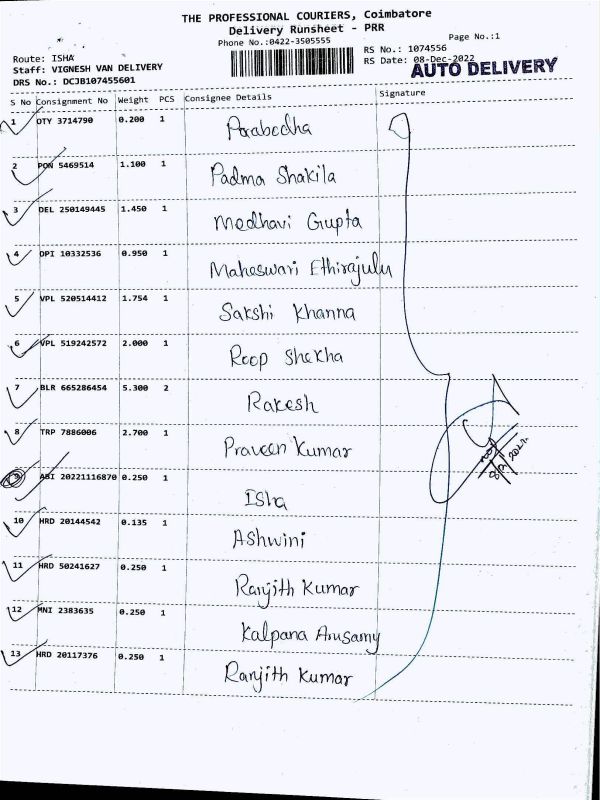 THE PROFESSIONAL COURIERS, Coimbatore
Delivery Runsheet - PRR
Phone No.:0422-3505555
Page No.:1
Route: ISHA
RS No.: 1074556
Staff: VIGNESH VAN DELIVERY
RS Date: 08-Dec-2022
DRS No.: DCJB107455601
AUTO DELIVERY
S No Consignment No Weight PCS Consignee Details Signature
1 OTY 3714790 0.200 1 Parabodha
2 PON 5469514 1.100 1 Padma Shakila
3 DEL 250149445 1.450 1 Medhavi Gupta
4 OPI 10332536 0.950 1 Maheswari Ethirajulu
5 VPL 520514412 1.754 1 Sakshi Khanna
6 VPL 519242572 2.000 1 Roop Shekha
7 BLR 665286454 5.300 2 Rakesh
8 TRP 7886006 2.700 1 Praveen Kumar
9 ABI 20221116870 0.250 1 Isha
10 HRD 20144542 0.135 1 Ashwini
11 HRD 50241627 0.250 1 Ranjith Kumar
12 MNI 2383635 0.250 1 Kalpana Arusamy
13 HRD 20117376 0.250 1 Ranjith Kumar